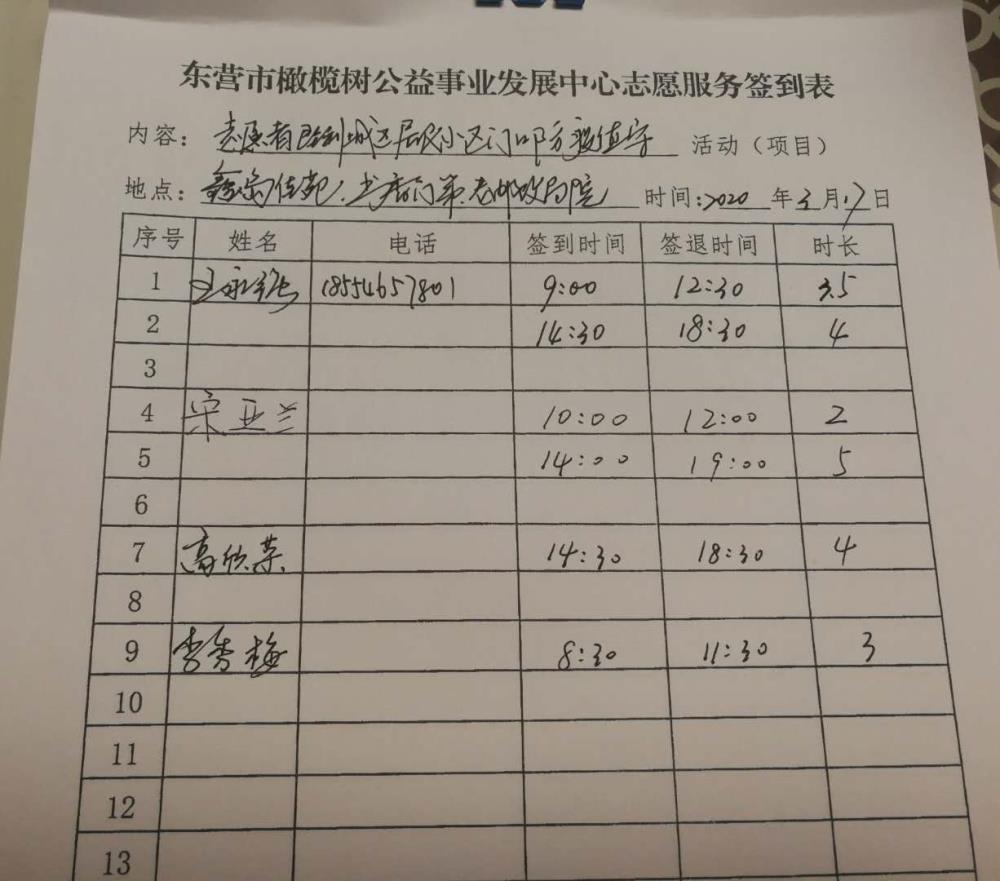 东营市橄榄树公益事业发展中心志愿服务签到表
内容：志愿者 城区居民小区门口防疫值守 活动（项目）
地点：鑫 佳苑、书店门第、老邮政局院 时间：2020年3月17日
序号 姓名 电话 签到时间 签退时间 时长
1 王 18554657801 9:00 12:30 3.5
2 14:30 18:30 4
3
4 宋亚兰 10:00 12:00 2
5 14:00 19:00 5
6
7 高欣荣 14:30 18:30 4
8
9 李秀梅 8:30 11:30 3
10
11
12
13